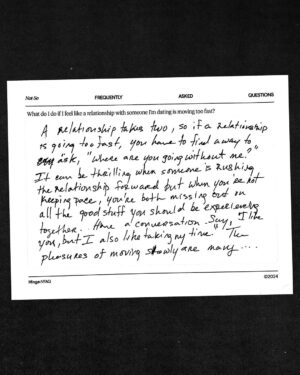 Not-So FREQUENTLY ASKED QUESTIONS
What do I do if I feel like a relationship with someone I'm dating is moving too fast?
A relationship takes two, so if a relationship
is going too fast, you have to find a way to
ask, "where are you going without me?"
It can be thrilling when someone is rushing
the relationship forward but when you're not
keeping pace, you're both missing out on
all the good stuff you should be experiencing
together. Have a conversation. Say, "I like
you, but I also like taking my time." The
pleasures of moving slowly are many....
©2024